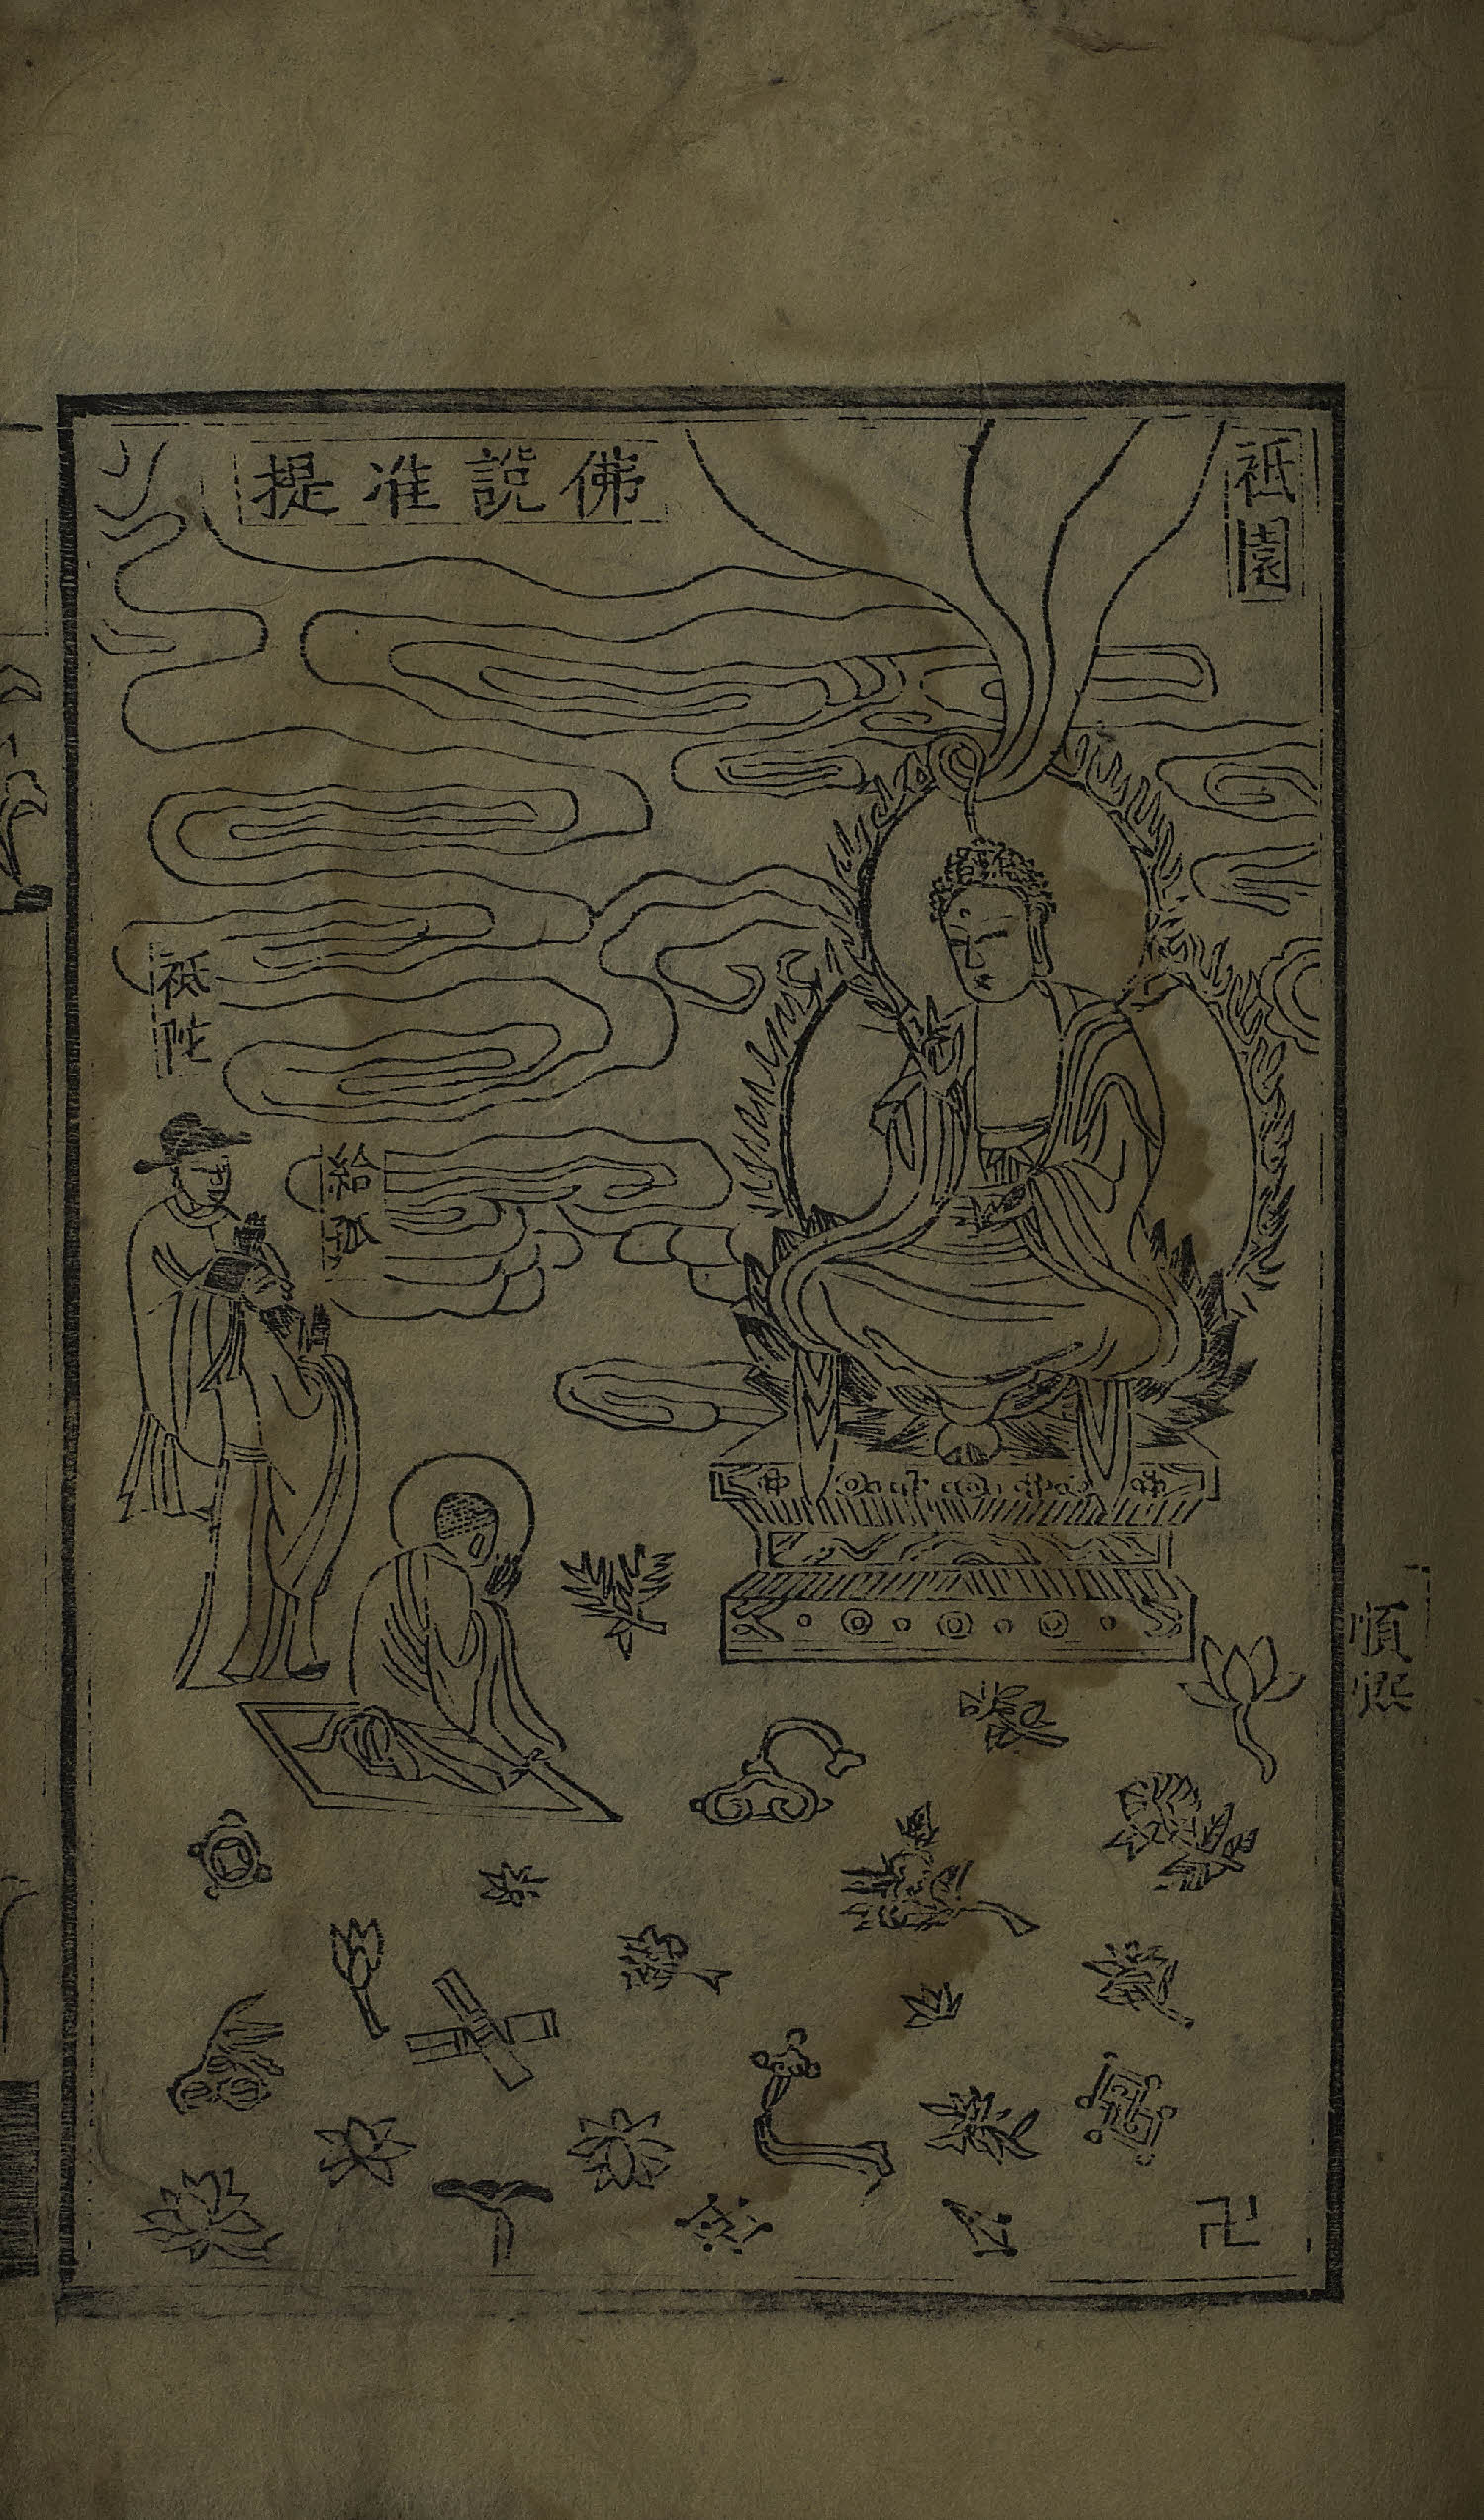 祇園
佛說准提
給孤
祇陀
順熙
卍